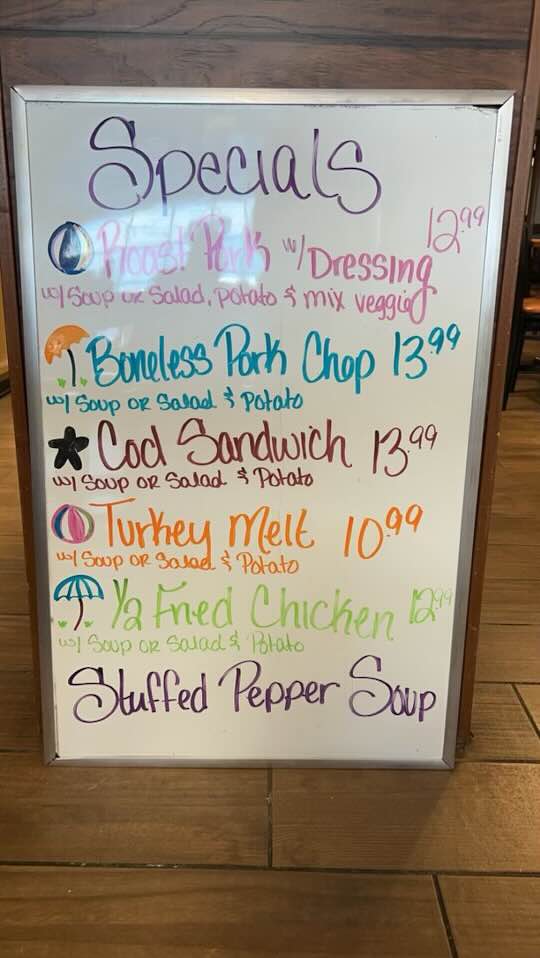 Specials
Roast Pork w/ Dressing 12.99
w/ Soup or Salad, potato & mix veggies
Boneless Pork Chop 13.99
w/ Soup or Salad & Potato
Cod Sandwich 13.99
w/ Soup or Salad & Potato
Turkey Melt 10.99
w/ Soup or Salad & Potato
1/2 Fried Chicken 12.99
w/ Soup or Salad & Potato
Stuffed Pepper Soup